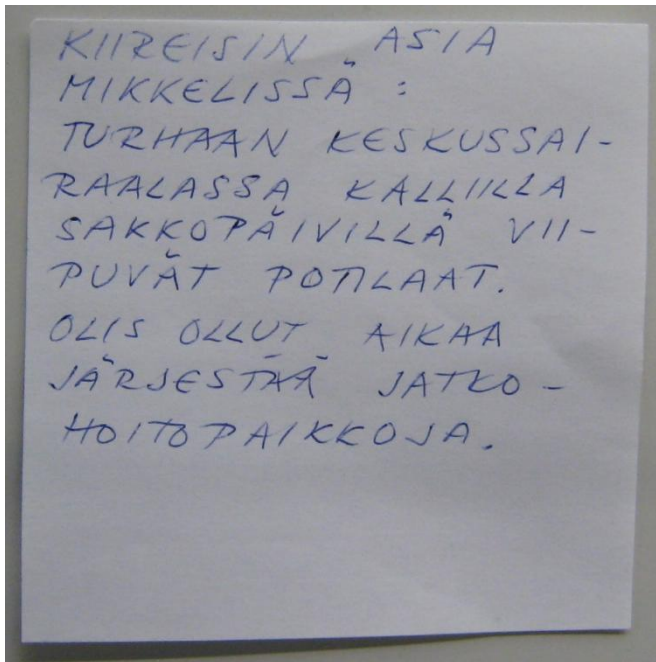 KIIREISIN ASIA
MIKKELISSÄ :
TURHAAN KESKUSSAI-
RAALASSA KALLIILLA
SAKKOPÄIVILLÄ VII-
PUVÄT POTILAAT.
OLIS OLLUT AIKAA
JÄRJESTÄÄ JATKO-
HOITOPAIKKOJA.